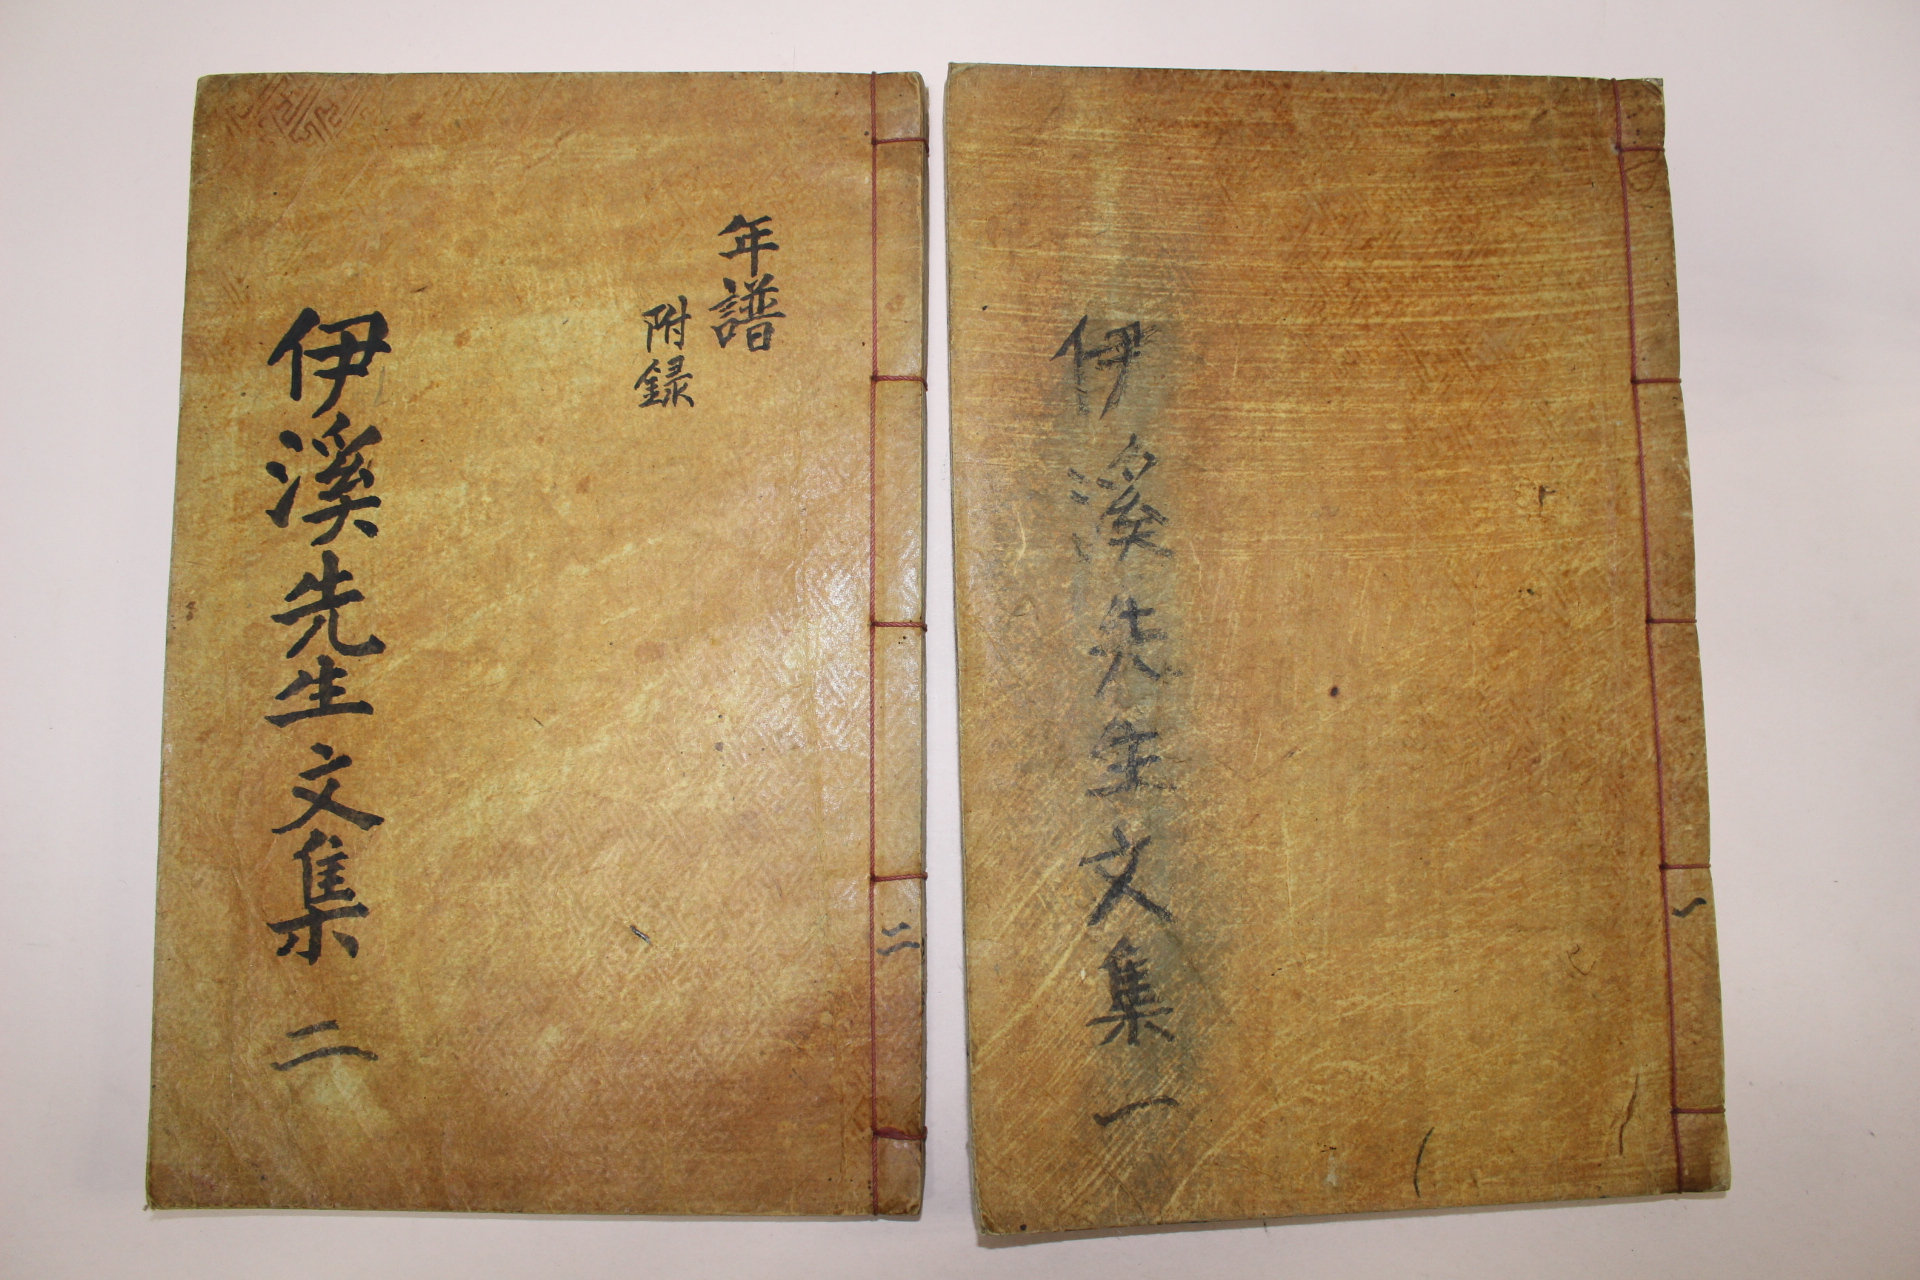 伊溪先生文集 一
一
年譜
附録
伊溪先生文集 二
二